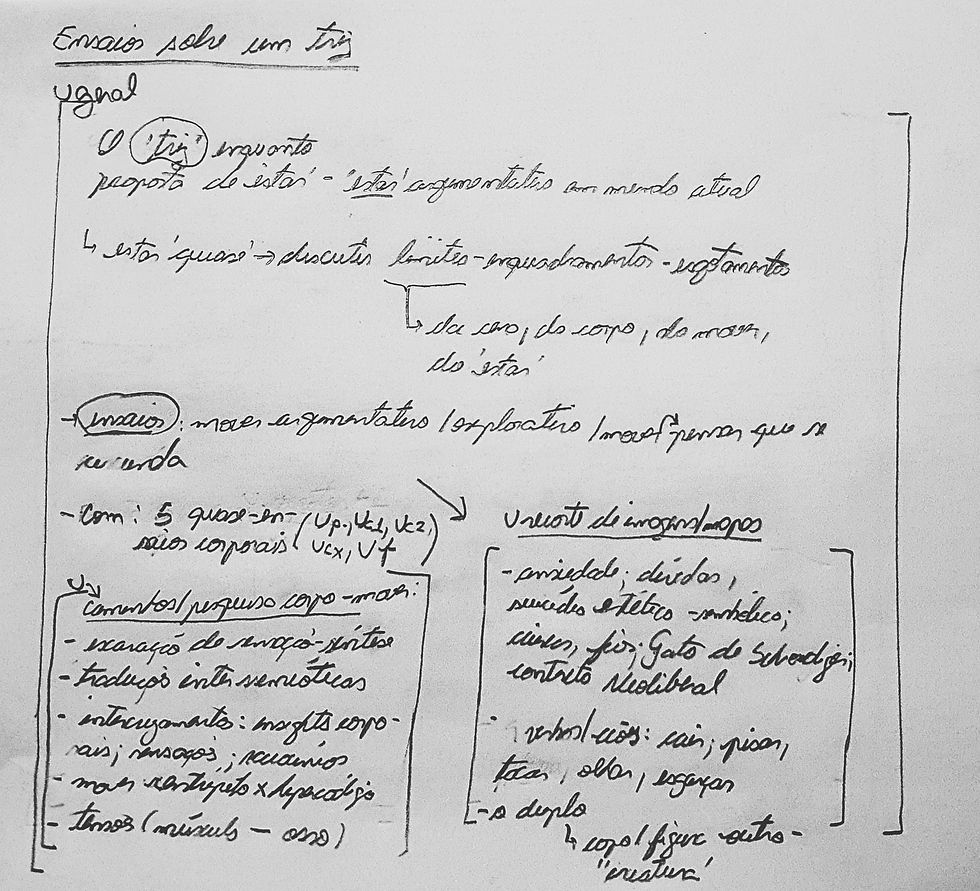 Ensaios sobre um triz
v geral
O 'triz' enquanto
proposta de 'estar' - 'estar' argumentativo em mundo atual
↳ estar 'quase' → discutir limites - enquadramentos - esgotamentos
↳ da cena, do corpo, do mover,
do 'estar'
→ ensaios: mover argumentativo / explorativo / mover pensar que se
- Com: 5 quase-en-
saios corporais (Vp., Vc1, Vc2,
Vcx, Vf)
V recorte de imagens/mapas
- ansiedade; dúvidas,
suicídio estético - simbólico;
fios; Gato de
contexto Neoliberal
- verbos/ções: cair, pisar,
tocar, olhar,
- o duplo
↳ corpo/figura - outro -
"criatura"
camentos/pesquisa corpo-mover:
- de sensação-síntese
- traduções intersemióticas
- intercruzamentos: insights corpo-
rais; sensações; raciocínios
- mover centrípeto x
- tensões (músculo — osso)